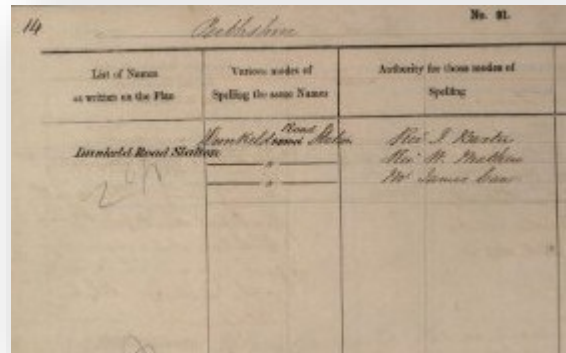 14 Perthshire No. 91.
List of Names
as written on the Plan
Various modes of
Spelling the same Names
Authority for those modes of
Spelling
Dunkeld Road Station
Dunkeld Road Station
Revd. J. Baxter
— " —
Revd. W.
— " —
Mr James